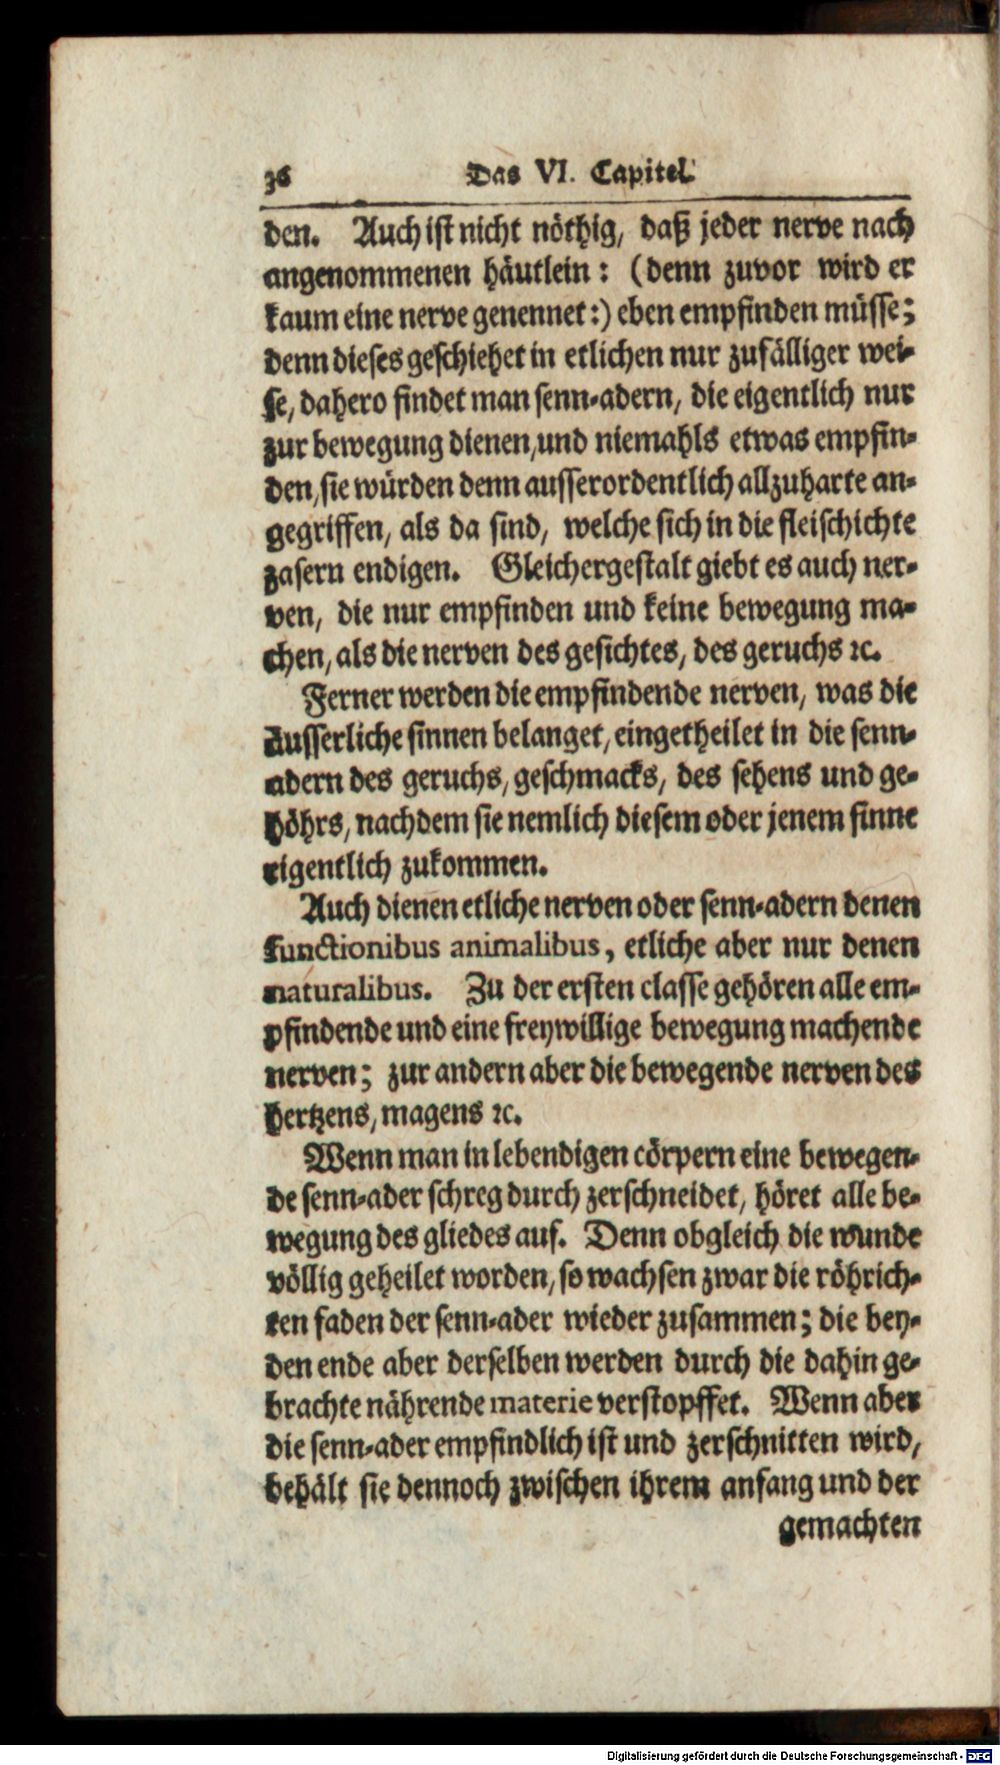 36 Das VI. Capitel.
den. Auch ist nicht nöthig, daß jeder nerve nach
angenommenen häutlein: (denn zuvor wird er
kaum eine nerve genennet:) eben empfinden müsse;
denn dieses geschiehet in etlichen nur zufälliger wei-
se, dahero findet man senn-adern, die eigentlich nur
zur bewegung dienen, und niemahls etwas empfin-
den, sie würden denn ausserordentlich allzuharte an-
gegriffen, als da sind, welche sich in die fleischichte
zasern endigen. Gleichergestalt giebt es auch ner-
ven, die nur empfinden und keine bewegung ma-
chen, als die nerven des gesichtes, des geruchs ꝛc.
Ferner werden die empfindende nerven, was die
äusserliche sinnen belanget, eingetheilet in die senn-
adern des geruchs, geschmacks, des sehens und ge-
höhrs, nachdem sie nemlich diesem oder jenem sinne
eigentlich zukommen.
Auch dienen etliche nerven oder senn-adern denen
functionibus animalibus, etliche aber nur denen
naturalibus. Zu der ersten classe gehören alle em-
pfindende und eine freywillige bewegung machende
nerven; zur andern aber die bewegende nerven des
hertzens, magens ꝛc.
Wenn man in lebendigen cörpern eine bewegen-
de senn-ader schreg durch zerschneidet, höret alle be-
wegung des gliedes auf. Denn obgleich die wunde
völlig geheilet worden, so wachsen zwar die röhrich-
ten faden der senn-ader wieder zusammen; die bey-
den ende aber derselben werden durch die dahin ge-
brachte nährende materie verstopffet. Wenn aber
die senn-ader empfindlich ist und zerschnitten wird,
behält sie dennoch zwischen ihrem anfang und der
gemachten
Digitalisierung gefördert durch die Deutsche Forschungsgemeinschaft - DFG